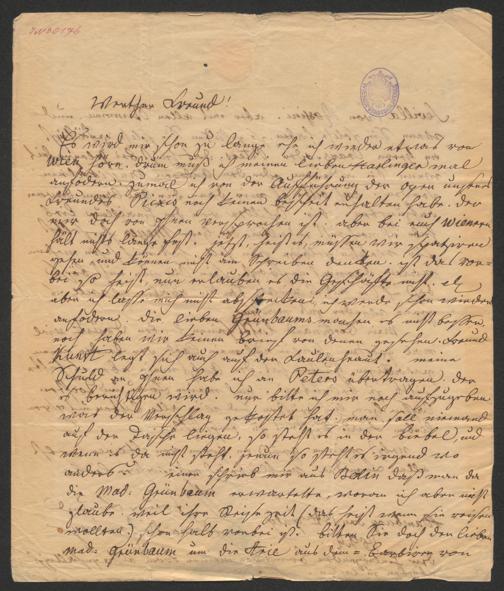 Werther Freund!
Es wird mir schon zu lange ehe ich wieder etwas von
Wien höre. drum muß ich meinen lieben Haslinger mal
anfodern. zumal ich von der Aufführung der oper unsers
Freundes noch keinen bescheit erhalten habe. der
mir doch von Ihnen versprochen ist. aber bei euch Wienern
hält nichts lange fest. jetzt, heist es, müssen wir spatziren
gehen und können nicht am Schreiben denken. ist das vor-
bei so heist nur erlauben es die Geschäfte nicht.
aber ich lasse mich nicht abschrecken, ich werde schon wieder
anfodern. die lieben Grünbaums machen es nicht besser,
noch haben wir keinen brief von denen gesehen. Freund
Kunst legt sich auch auf der faulen haut. meine
Schuld an Ihnen habe ich an Peters übertragen. der
es berichtigen wird. nur bitte ich mir noch aufzugeben
was der Vorschlag gekostet hat. man soll niemand
auf der Tasche liegen, so steht es in der biebel, und
wenn es da nicht steht, so steht es irgend wo
anders. einer schrieb mir aus daß man da
die Mad: Grünbaum erwartete, woran ich aber nicht
glaube weil ihre Reisezeit (das heist wenn sie reisen
wollten) schon halb vorbei ist. bitten Sie doch den lieben
Mad: Grünbaum um die Arie aus dem Barbier von